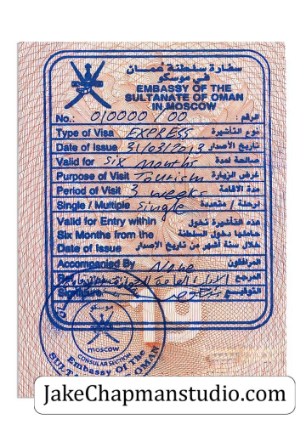 سفارة سلطنة عمـــان
في موسكو
EMBASSY OF THE
SULTANATE OF OMAN
IN,MOSCOW
No.: 010000/00 الرقم
Type of Visa EXPRESS نوع التأشيرة
Date of Issue 31/03/2013 تاريخ الأصدار
Valid for Six months صالحة لمدة
Purpose of Visit Tourism غرض الزيارة
Period of Visit 3 weeks مدة الاقامة
Single / Multiple Single لرحلة / متعددة
Valid for Entry within هذه التأشيرة تخول
Six Months from the حاملها دخول السلطنة
Date of Issue خلال ستة أشهر من تاريخ الإصدار
Accompanied By None المرافقون
المرجع
moscow
CONSULAR SECTION
Embassy Of The
SULTANATE OF OMAN
JakeChapmanstudio.com